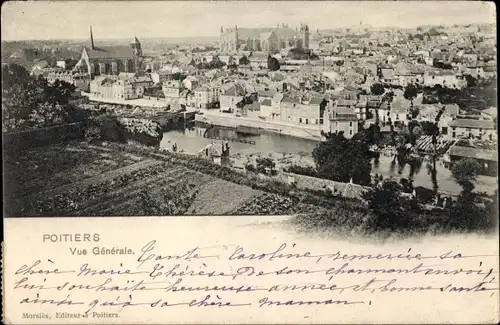 POITIERS
Vue Générale.
Tante Caroline, remercie sa
chère Marie Thérèse de son charmant envoi,
lui souhaite heureuse année, et bonne santé,
ainsi qu'à sa chère maman.
Moralès, Editeur à Poitiers.